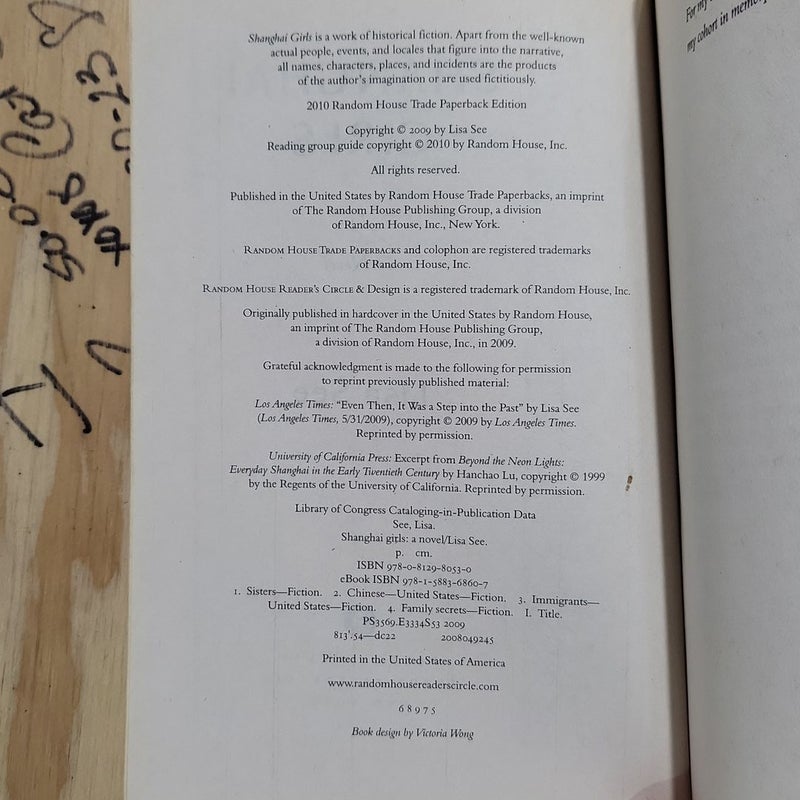 Shanghai Girls is a work of historical fiction. Apart from the well-known
actual people, events, and locales that figure into the narrative,
all names, characters, places, and incidents are the products
of the author's imagination or are used fictitiously.
2010 Random House Trade Paperback Edition
Copyright © 2009 by Lisa See
Reading group guide copyright © 2010 by Random House, Inc.
All rights reserved.
Published in the United States by Random House Trade Paperbacks, an imprint
of The Random House Publishing Group, a division
of Random House, Inc., New York.
RANDOM HOUSE TRADE PAPERBACKS and colophon are registered trademarks
of Random House, Inc.
RANDOM HOUSE READER'S CIRCLE & Design is a registered trademark of Random House, Inc.
Originally published in hardcover in the United States by Random House,
an imprint of The Random House Publishing Group,
a division of Random House, Inc., in 2009.
Grateful acknowledgment is made to the following for permission
to reprint previously published material:
Los Angeles Times: "Even Then, It Was a Step into the Past" by Lisa See
(Los Angeles Times, 5/31/2009), copyright © 2009 by Los Angeles Times.
Reprinted by permission.
University of California Press: Excerpt from Beyond the Neon Lights:
Everyday Shanghai in the Early Twentieth Century by Hanchao Lu, copyright © 1999
by the Regents of the University of California. Reprinted by permission.
Library of Congress Cataloging-in-Publication Data
See, Lisa.
Shanghai girls: a novel/Lisa See.
p. cm.
ISBN 978-0-8129-8053-0
eBook ISBN 978-1-5883-6860-7
1. Sisters—Fiction. 2. Chinese—United States—Fiction. 3. Immigrants—
United States—Fiction. 4. Family secrets—Fiction. I. Title.
PS3569.E3334S53 2009
813'.54—dc22 2008049245
Printed in the United States of America
www.randomhousereaderscircle.com
6 8 9 7 5
Book design by Victoria Wong
For my
my cohort in